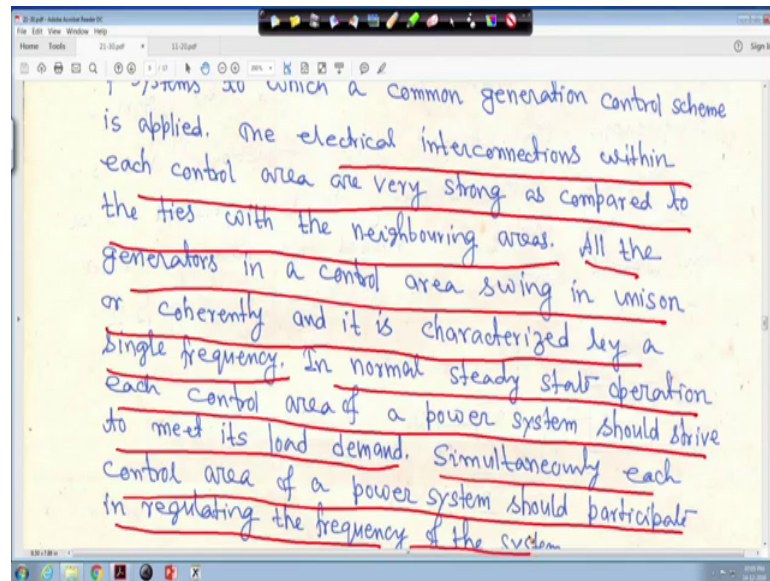 21-30.pdf - Adobe Acrobat Reader DC
File Edit View Window Help
Home Tools 21-30.pdf × 11-20.pdf Sign I
systems to which a common generation control scheme
is applied. The electrical interconnections within
each control area are very strong as compared to
the ties with the neighbouring areas. All the
generators in a control area swing in unison
or coherently and it is characterized by a
single frequency. In normal steady state operation
each control area of a power system should strive
to meet its load demand. Simultaneously each
control area of a power system should participate
in regulating the frequency of the system